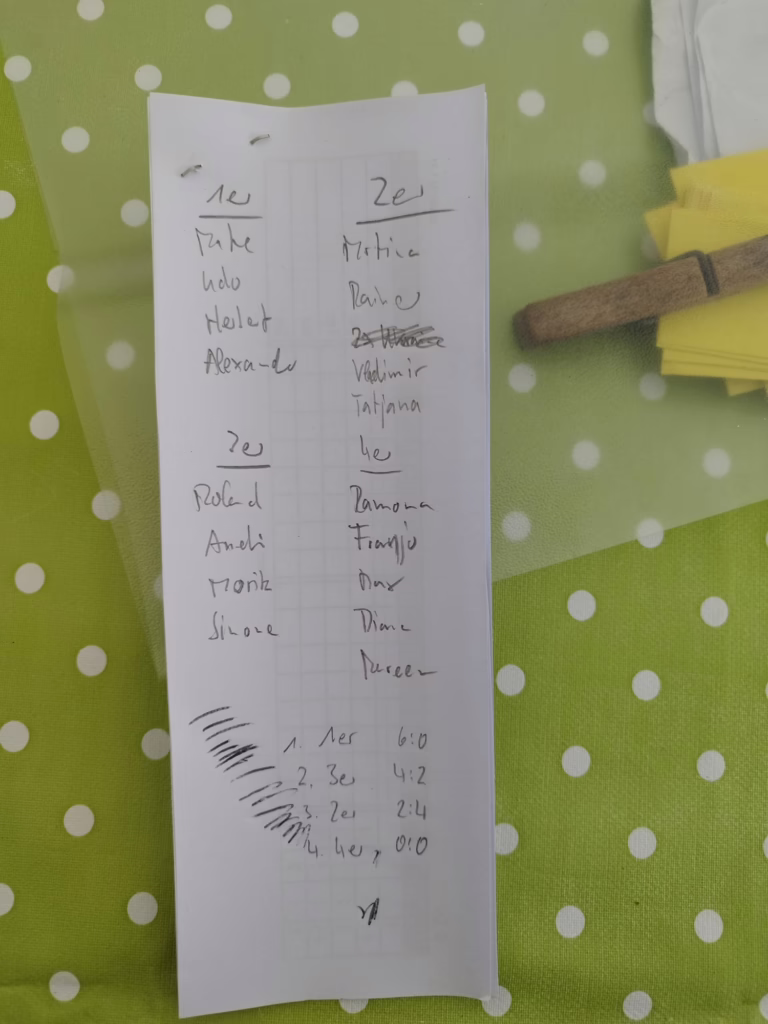 1er
Mike
Udo
Alexander
2er
Martina
Rainer
Vladimir
Tatjana
3er
Roland
Andi
Moritz
Simone
4er
Ramona
Franjo
Max
Diana
1. 1er 6:0
2. 3er 4:2
3. 2er 2:4
4. 4er, 0:0